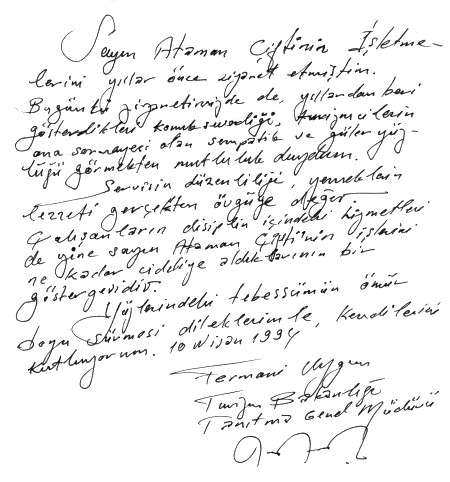 Sayın Ataman Çiftinin İşletme-
lerini yıllar önce ziyaret etmiştim.
Bugünkü ziyaretimizde de, yıllardan beri
gösterdikleri konukseverliği, turizmcilerin
ana sermayesi olan sempatik ve güler yüz-
lüğü görmekten mutluluk duydum.
Servisin düzenliliği, yemeklerin
lezzeti gerçekten övgüye değer.
Çalışanların disiplin içindeki hizmetleri
de yine sayın Ataman Çiftinin işlerini
ne kadar ciddiye aldıklarının bir
göstergesidir.
Yüzlerindeki tebessümün ömür
boyu sürmesi dileklerimle, kendilerini
kutluyorum. 10 Nisan 1994
Fermani Uygun
Turizm Bakanlığı
Tanıtma Genel Müdürü